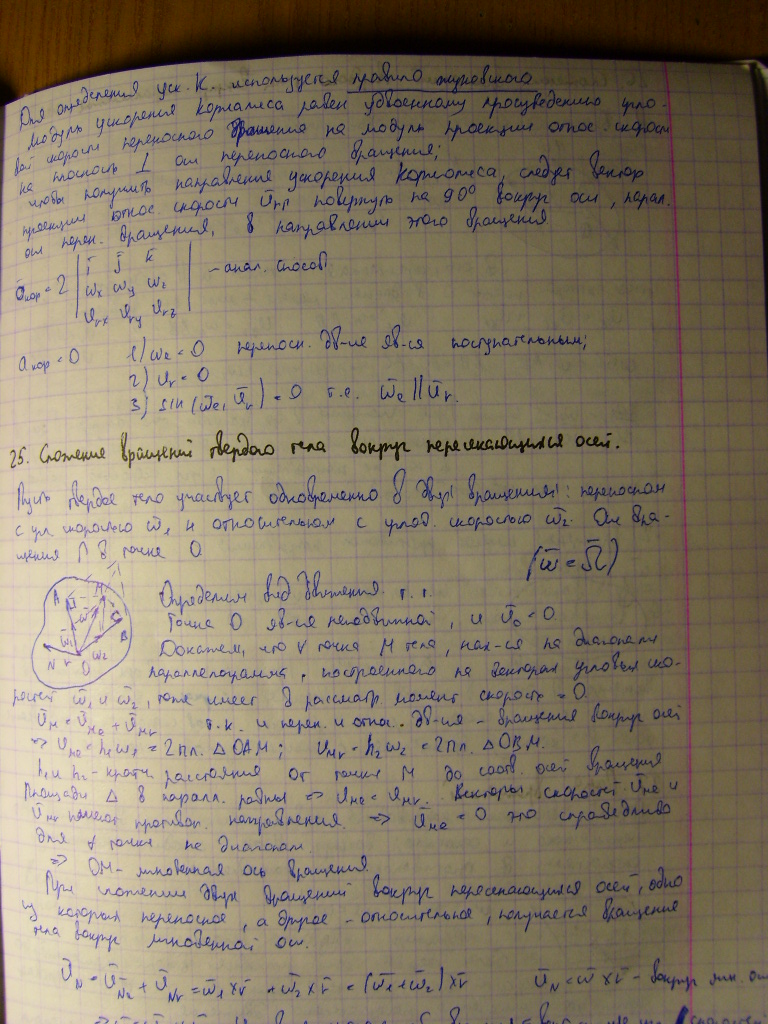 Для определения уск. К. используется правило жуковского
Модуль ускорения Кориолиса равен удвоенному произведению угло-
вой скорости переносного вращения на модуль проекции относ. скорости
на плоскость ⊥ оси переносного вращения;
чтобы получить направление ускорения Кориолиса, следует вектор
проекции относ. скорости повернуть на 90° вокруг оси, парал.
оси перен. вращения, в направлении этого вращения
ā кор = 2 | i̅ j̅ k̅ | - анал. способ
ωx ωy ωz
vrx vry vrz
a кор = 0 1) ωe = 0 переносн. дв-ие яв-ся поступательным;
2) vr = 0
3) sin (ω̅e, v̅r) = 0 т.е. ω̅e || v̅r.
25. Сложение вращений твердого тела вокруг пересекающихся осей.
Пусть твердое тело участвует одновременно в двух вращениях: переносном
с угл скоростью ω̅1 и относительном с углов. скоростью ω̅2. Оси вра-
щения ∩ в точке O
(ω̅ = Ω̅)
Определим вид движения. т.
Точка O яв-ся неподвижной, и v̅o = 0
Докажем, что ∀ точка M тела, нах-ся на диагонали
параллелограмма, построенного на векторах угловых ско-
ростей ω̅1 и ω̅2, тоже имеет в рассматр. момент скорость = 0.
v̅M = v̅Me + v̅Mr т.к. и перен. и относ. дв-ия - вращения вокруг осей
=> vMe = h1ω1 = 2 пл. △OAM ; vMr = h2ω2 = 2 пл. △OBM.
h1 и h2 - кратч. расстояния от точки M до соотв. осей вращения
Площади △ в паралл. равны => vMe = vMr. Векторы скоростей v̅Me и
v̅Mr имеют противоп. направления => v̅Me = 0 это справедливо
для ∀ точки на диагонали.
=> OM - мгновенная ось вращения.
При сложении двух вращений вокруг пересекающихся осей, одно
из которых переносное, а другое - относительное, получается вращение
тела вокруг мгновенной оси.
v̅N = v̅Ne + v̅Nr = ω̅1 × r̅ + ω̅2 × r̅ = (ω̅1 + ω̅2) × r̅ v̅N = ω̅ × r̅ - вокруг мгн. оси